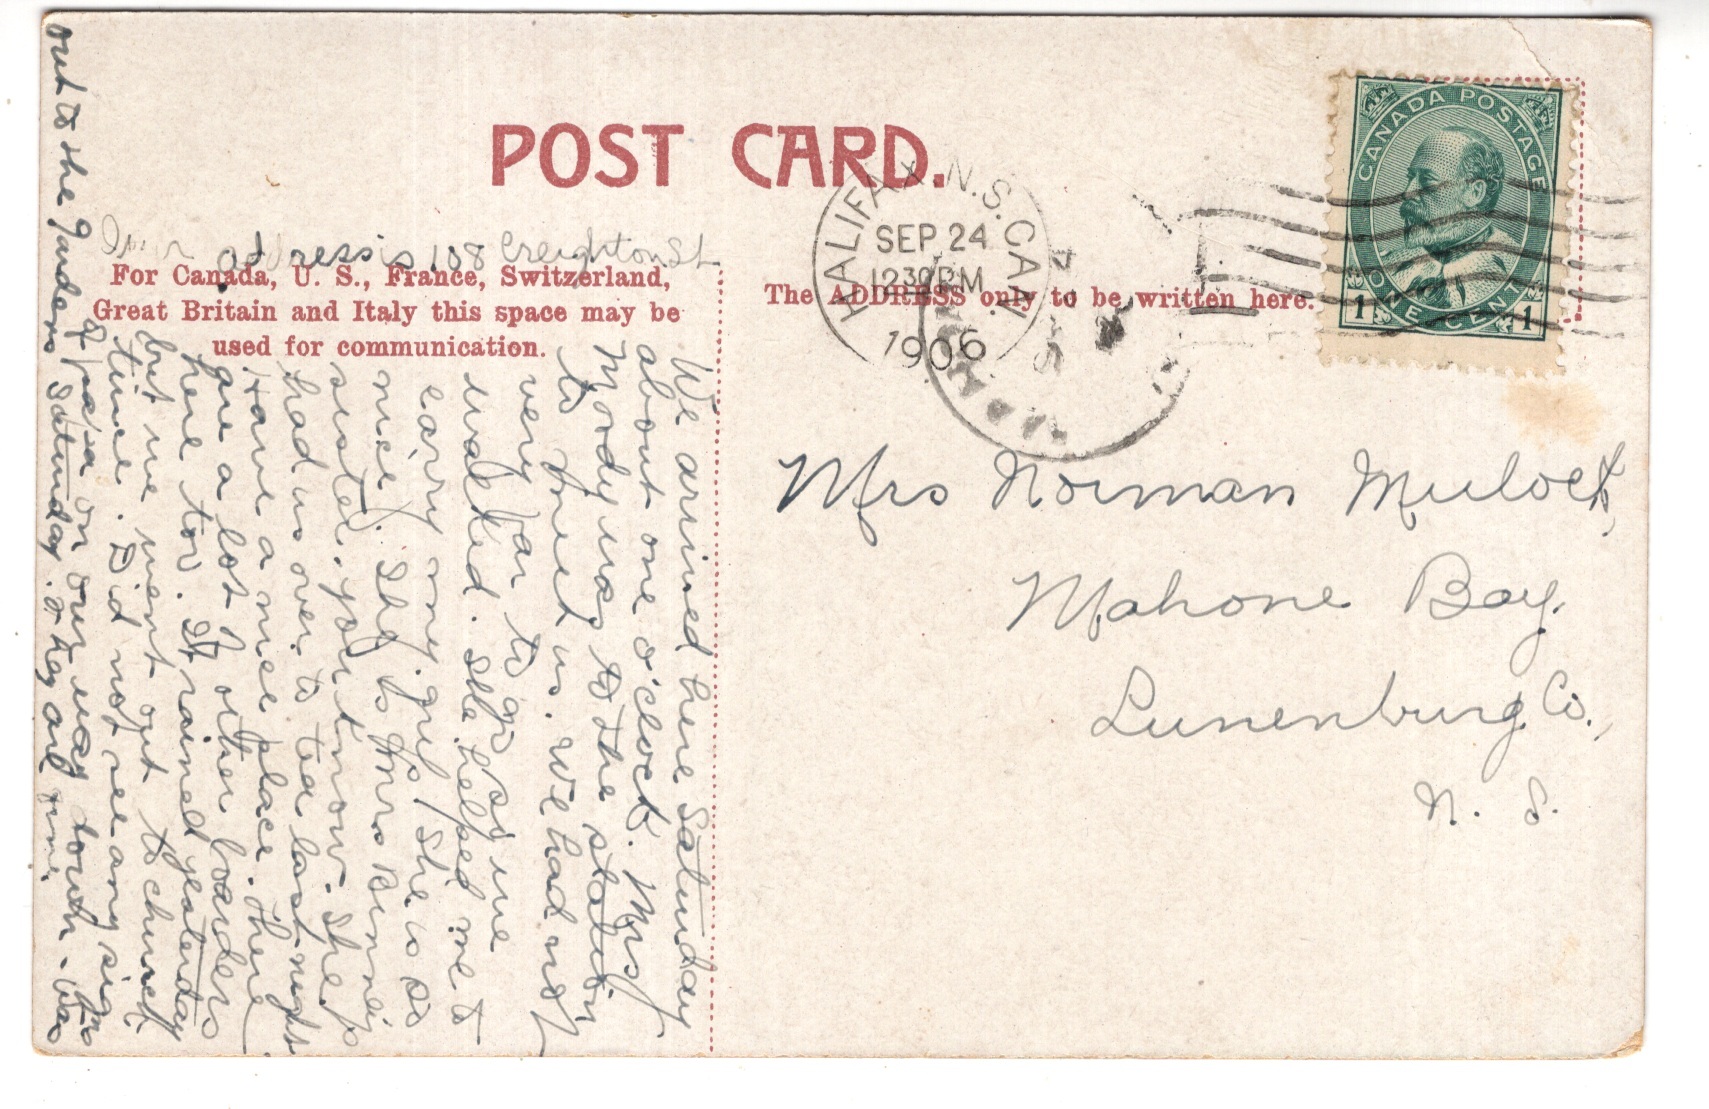 POST CARD.
HALIFAX, N.S. CAN.
SEP 24
1230PM
1906
CANADA POSTAGE
ONE CENT
1 1
address is 108 Creighton St
For Canada, U. S., France, Switzerland,
Great Britain and Italy this space may be
used for communication.
The ADDRESS only to be written here.
Mrs Norman Mulock,
Mahone Bay.
Lunenburg Co.,
N. S.
We arrived here Saturday
about one o'clock. Mrs
Mordy was to the station
to meet us. We had not
very far to go so we
walked. She helped me to
carry my grip. She is so
nice. She is Mrs Binney
sister, you know. She
had us over to tea last night
Have a nice place. There
are a lot of other boarders
here too. It rained yesterday
but we went out to church
time. Did not see any sign
of on our way down. Was
out to the Gardens Saturday. They are